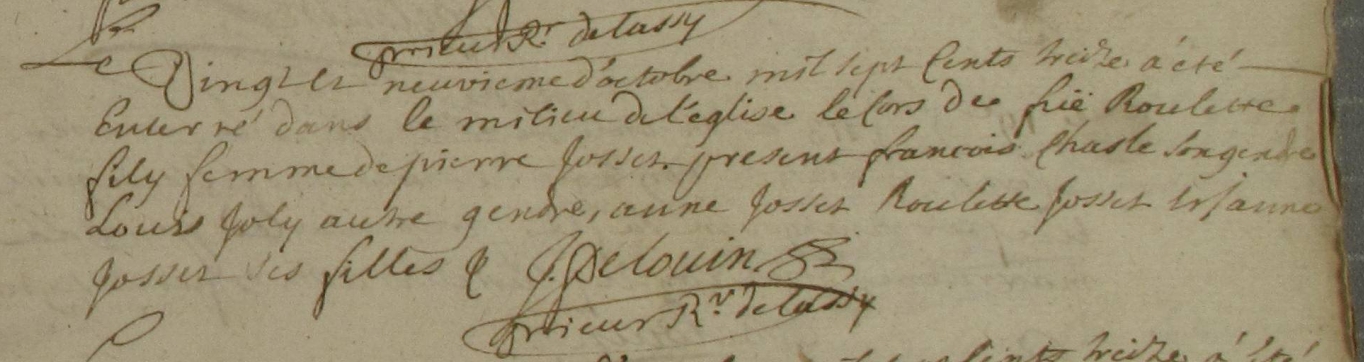 prieur Rr delassy
Le Vingt et neuvieme d'octobre mil sept Cents treize a été
Enterré dans le milieu de l'eglise le Cors de feüe Roulette
fily femme de pierre Josset. present francois Chasle son gendre
Louis Joly autre gendre, anne Josset Roulette Josset et janne
Josset ses filles J. Delouin
prieur Rr delassy
cents treize a été